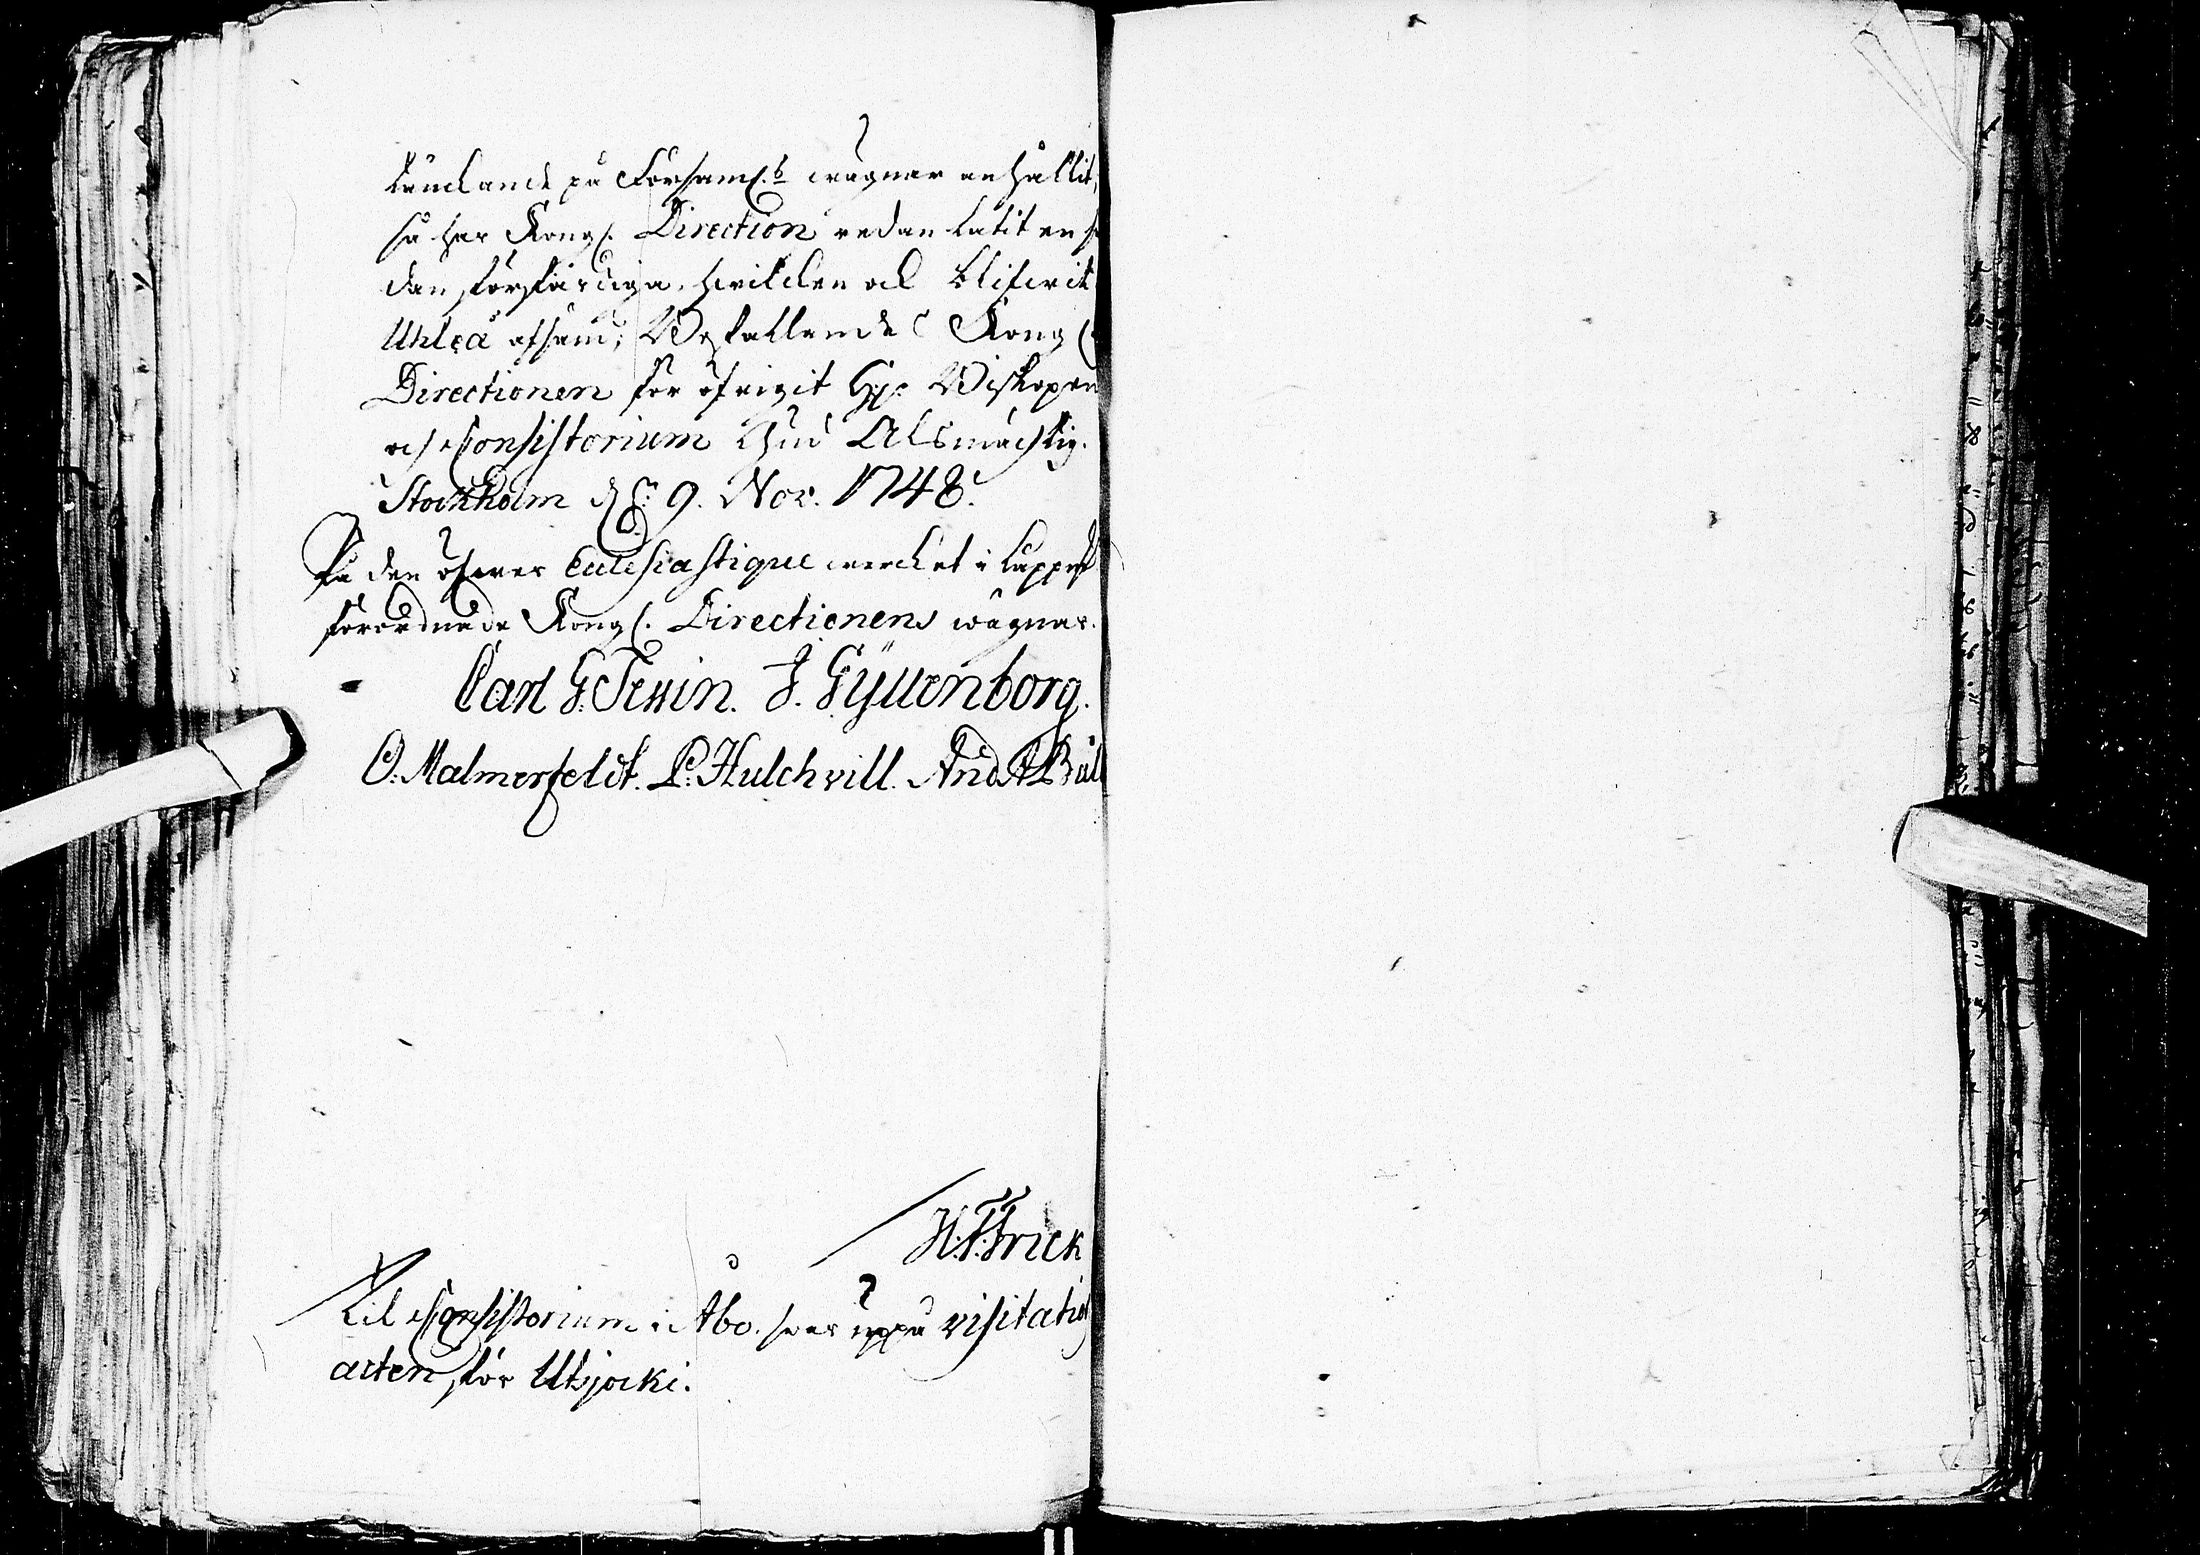 ländande på Församl.s wägnar anhållit,
så har Kongl. Direction redan låtit en så
dan förfärdiga, hwilcken ock blifwit
Uhleå afsänd; Befallande Kongl.
Directionen för öfrigit Hr Biskopen
och Consistorium Gud Alsmächtig.
Stockholm d. 9. Nov. 1748.
På den öfwer Ecclesiastique wercket i Lappm
förordnade Kongl. Directionens wägnar.
Carl G. Tessin. J. Gyllenborg.
O. Malmerfeldt. P. Hulchvill. And
H. F. Frick
Til Consistorium i Åbo. swar uppå visitatio
acten för Utsjocki.